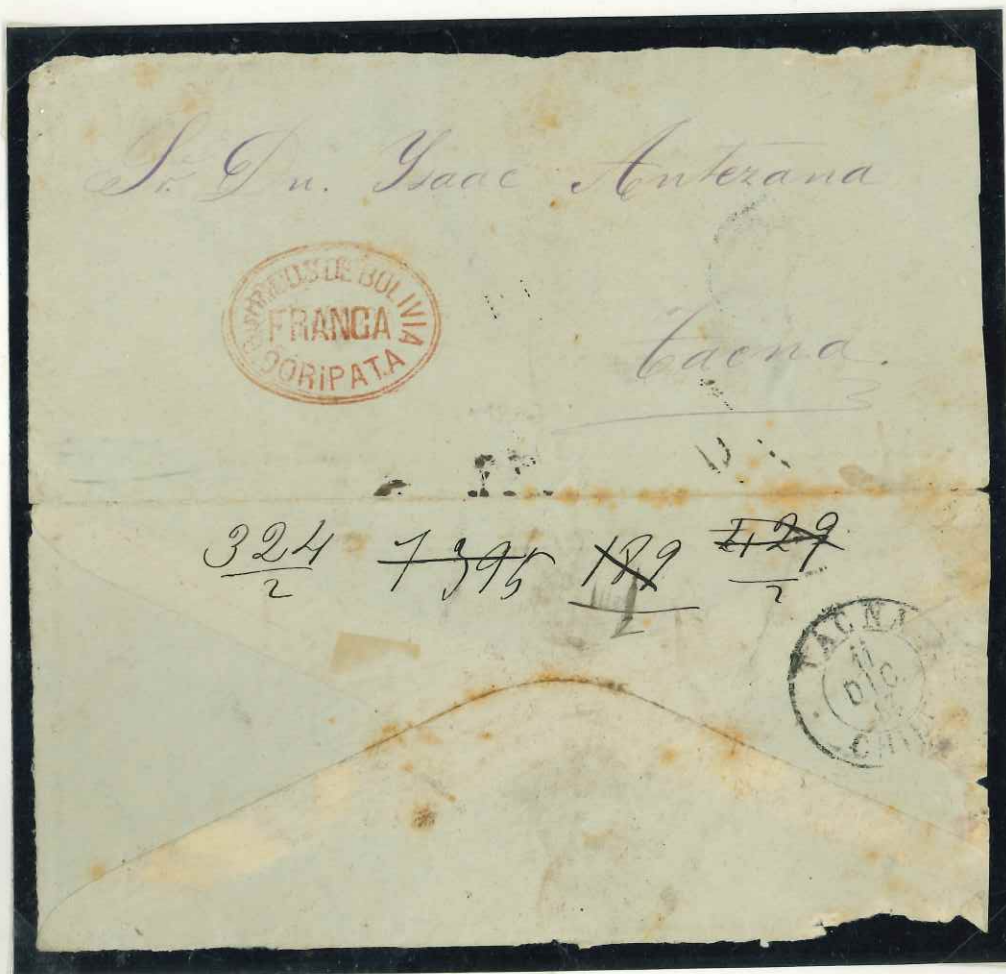 Sr. Dn. Ysaac Antezana
CORREOS DE BOLIVIA
FRANCA
CORiPATA
Tacna.
324/2 7395 189 429/2
TACNA
11
DIC